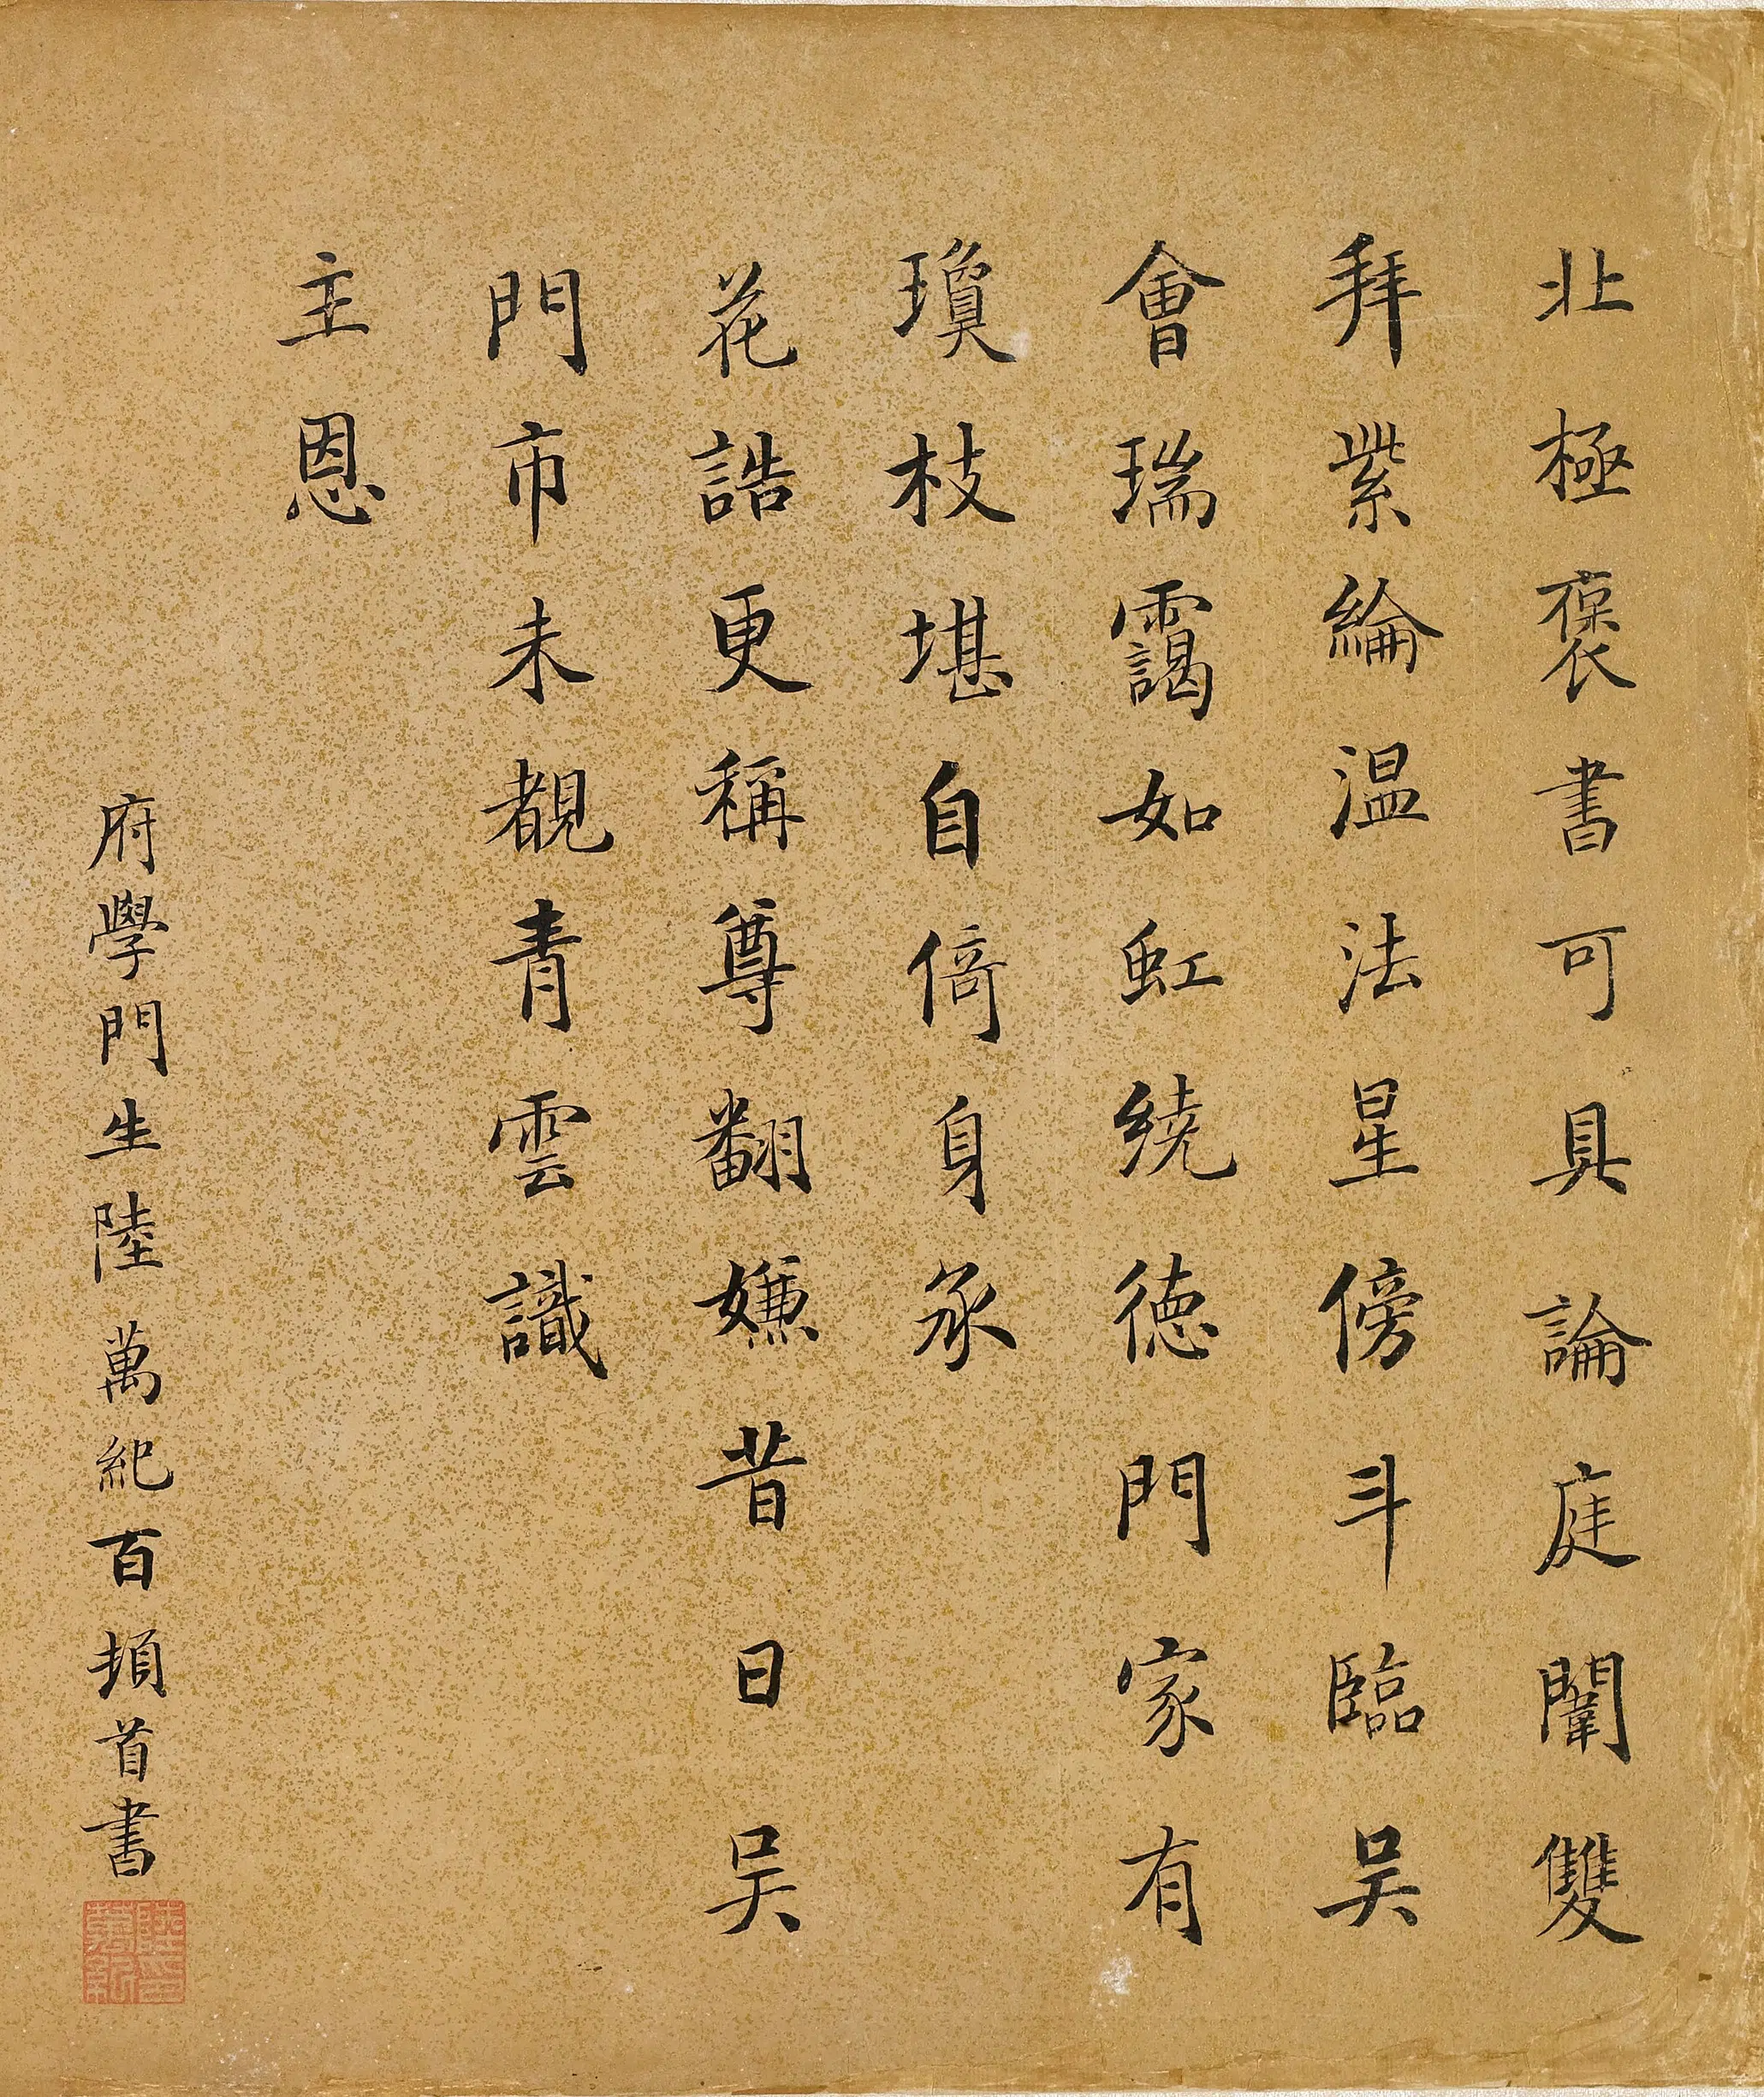 北極褒書可具論庭闈雙
拜紫綸温法星傍斗臨吴
會瑞靄如虹繞德門家有
瓊枝堪自倚身承
花誥更稱尊翻嫌昔日吴
門市未覩青雲識
主恩
府學門生陸萬紀百頓首書